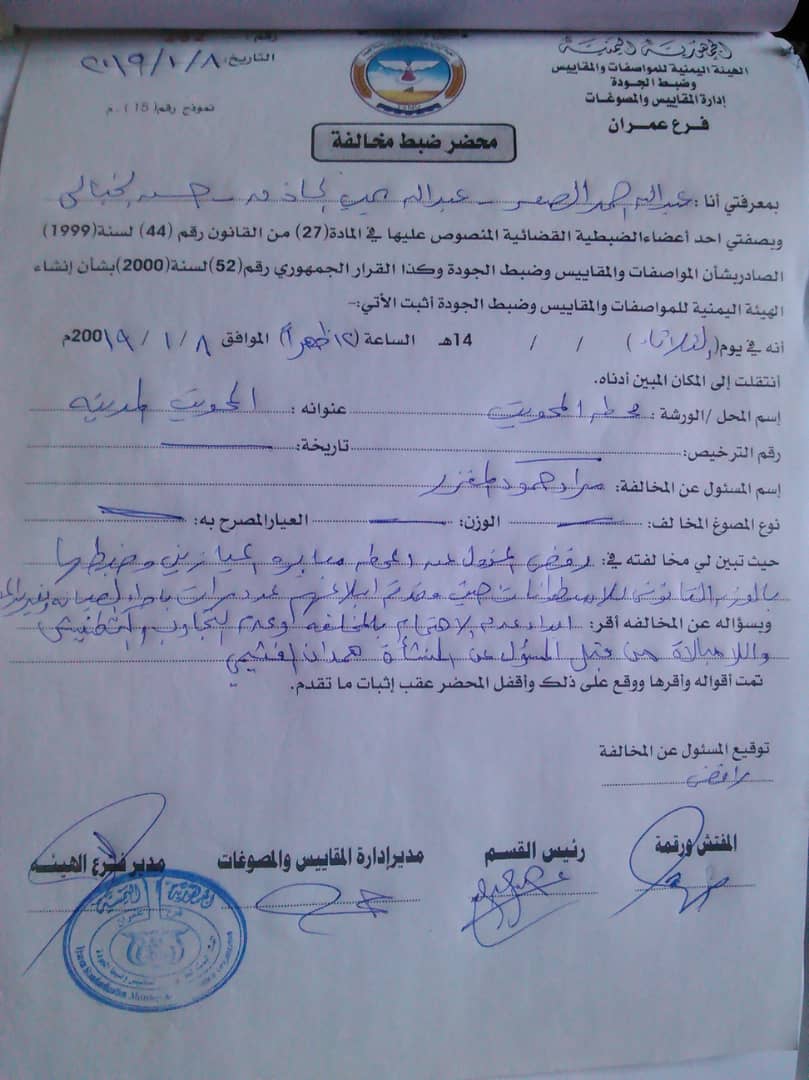 الجمهورية اليمنية
الهيئة اليمنية للمواصفات والمقاييس
وضبط الجودة
إدارة المقاييس والمصوغات
فرع عمران
رقم:
التاريخ: ٢٠١٩/١/٨
نموذج رقم (15) م.
محضر ضبط مخالفة
بمعرفتي أنا: عبدالله احمد الصعر - عبدالله - حسن
وبصفتي احد أعضاءالضبطية القضائية المنصوص عليها في المادة(27) من القانون رقم (44) لسنة(1999)
الصادربشأن المواصفات والمقاييس وضبط الجودة وكذا القرار الجمهوري رقم(52)لسنة(2000)بشأن إنشاء
الهيئة اليمنية للمواصفات والمقاييس وضبط الجودة أثبت الأتي:-
أنه في يوم(الثلاثاء) / / 14هـ الساعة (١٢ ظهراً) الموافق ٨ / ١ / ٢٠٠١٩م
أنتقلت إلى المكان المبين أدناه.
إسم المحل /الورشة: محطة المحويت عنوانه: المحويت المدينه
رقم الترخيص: تاريخة:
إسم المسئول عن المخالفة: مراد حمود
نوع المصوغ المخالف: الوزن: العيارالمصرح به:
حيث تبين لي مخالفته في: رفض المسؤول عن المحطه معايره الميازين وضبطها
بالوزن القانوني للاسطوانات حيث وقد تم ابلاغهم عدة مرات باجراء الصيانه
وبسؤاله عن المخالفه أقر: عدم الاهتمام بالمخالفه وعدم التجاوب والتطنيش
واللامبالاة من قبل المسؤول عن المنشأة همدان القشيمي
تمت أقواله وأقرها ووقع على ذلك وأقفل المحضر عقب إثبات ما تقدم.
توقيع المسئول عن المخالفة
رافض
المفتش ورقمة رئيس القسم مديرإدارة المقاييس والمصوغات مدير فرع الهيئه
الجمهورية اليمنية